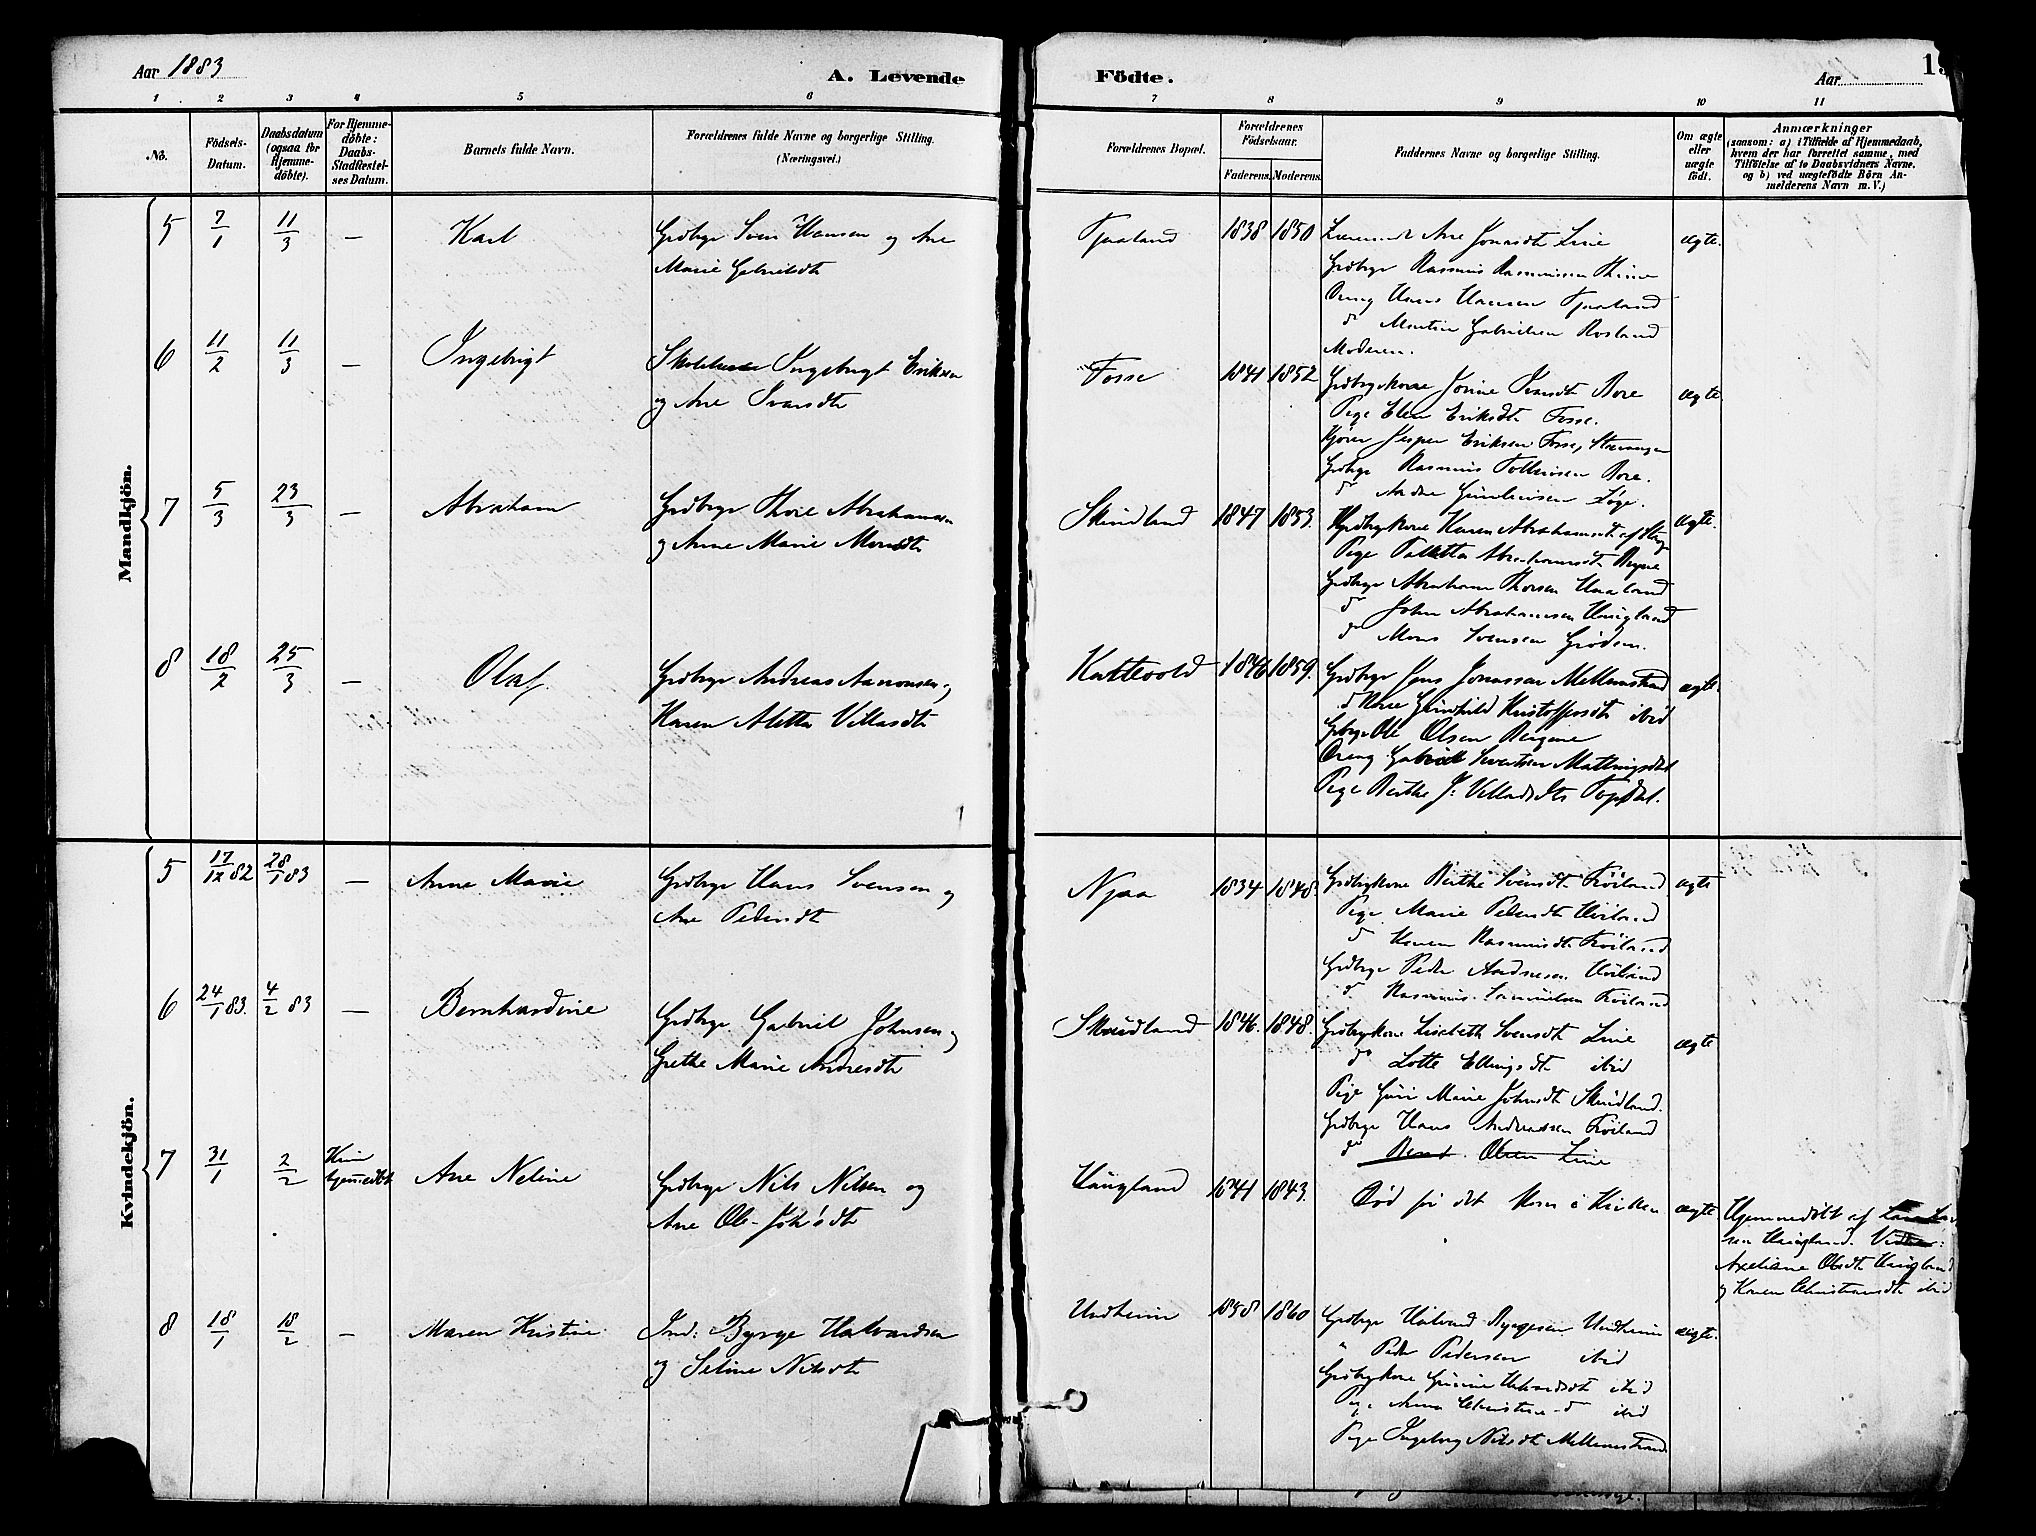 Aar 1883
A. Levende
Födte.
Aar
1 2 3 4 5 6 7 8 9 10 11
No.
Födsels-
Datum.
Daabsdatum
(ogsaa for
Hjemme-
döbte).
For Hjemme-
döbte:
Daabs-
Stadfæstel-
ses Datum.
Barnets fulde Navn.
Forældrenes fulde Navne og borgerlige Stilling.
(Næringsvei.)
Forældrenes Bopæl.
Forældrenes
Födselsaar.
Faderens. Moderens.
Faddernes Navne og borgerlige Stilling.
Om ægte
eller
uægte
født.
Anmærkninger
(saasom: a) i Tilfælde af Hjemmedaab,
hvem der har forrettet samme, med
Tilföielse af to Daabsvidners Navne.
og b) ved uægtefödte Börn An-
melderens Navn m. V.)
Mandkjön.
5 7/1 11/3 — Karl
Grdbrgr Sven Hansen og Ane
Marie Gabrielsdt
Tjaaland 1838 1850
Ane Jonasdt Line
Grdbrgr Rasmus Rasmussen Thime
Dreng Hans Hansen Tjaaland
do Martin Gabrielsen Rosland
Moderen.
ægte.
6 11/2 11/3 — Ingebrigt
Ingebrigt Eriksen
og Ane Ivarsdt
Fosse 1841 1852
Grdbrgrkone Jorine Ivarsdt Bore
Pige Elen Eriksdt Fosse.
Jesper Eriksen Fosse, Stavanger
Grdbrgr Rasmus Bore.
ægte
7 5/3 23/3 — Abraham
Grdbrgr Thore Abrahamsen
og Anne Marie Monsdt
Skrudland 1847 1853.
Grdbrgrkone Karen Abrahamsdt
Pige Abrahamsdt Bryne
Grdbrgr Abraham Thorsen Haaland
do John Abrahamsen Haugland
do Mons Svensen Grødem.
ægte.
8 18/2 25/3 — Olaf.
Grdbrgr Andreas Aanonsen og
Karen Aletta Villasdt
Kattevold 1846 1859.
Grdbrgr Jens Jonassen Mellemstrand
do Kone Gunhild Kristoffersdt ibid
Grbrgr Ole Olsen Bergene
Dreng Gabriel Sivertsen Mattingsdal
Pige Berthe J. Villadsdt Topdal.
ægte.
Kvindekjön.
5 17/12 82 28/1 83 — Anne Marie
Grdbrgr Hans Svensen og
Ane Pedersdt
Njaa 1834 1848.
Grdbrgrkone Berthe Svensdt Fröiland
Pige Marie Pedersdt
do Karen Rasmusdt Fröiland
Grdbrgr Peder Andreasen
do Rasmus Samuelsen Fröiland
ægte
6 24/1 83. 4/2 83 — Bernhardine
Grdbrgr Gabriel Johnsen og
Grethe Marie Andresdt
Skrudland 1846. 1848.
Grdbrgrkone Lisabeth Svensdt Line
do Lotte Ellingsdt ibid
Pige Guri Marie Johnsdt Skrudland.
Grdbrgr Hans Andreassen Fröiland
do Bernt Olsen Line
ægte
7 31/1 2/2 Kun
hjemmedöbt
Ane Neline
Grdbrgr Nils Nilsen og
Ane
Haugland 1841 1843.
Död för det kom i Kirken
ægte
Hjemmedöbt af
Haugland.
Axeliane Olsdt Haugland
og Karen Christiansdt ibid
8 18/1 18/2 — Maren Kristine
Ind: Byrge Halvardsen
og Seline Nilsdt
Undheim 1858 1860
Grdbrgr Halvard Byrgesen Undheim
" Peder Pedersen ibid
Grdbrgrkone Gurine Halvardsdt ibid
Pige Anna Christine do ibid
Pige Ingeborg Nilsdt Mellemstrand
ægte.